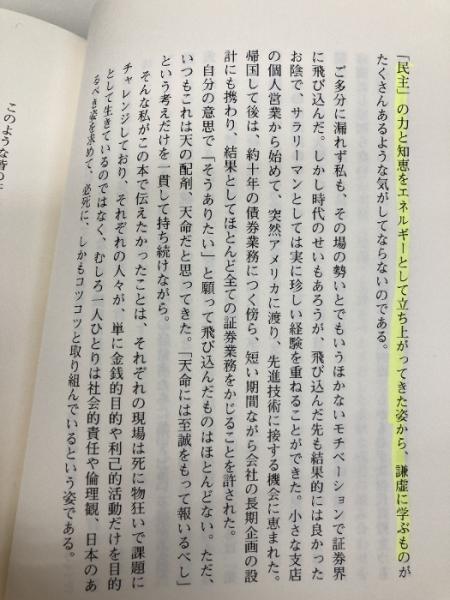 「民主」の力と知恵をエネルギーとして立ち上がってきた姿から、謙虚に学ぶものが
たくさんあるような気がしてならないのである。
ご多分に漏れず私も、その場の勢いとでもいうほかないモチベーションで証券界
に飛び込んだ。しかし時代のせいもあるうが、飛び込んだ先も結果的には良かった
お陰で、サラリーマンとしては実に珍しい経験を重ねることができた。小さな支店
の個人営業から始めて、突然アメリカに渡り、先進技術に接する機会に恵まれた。
帰国して後は、約十年の債券業務につく傍ら、短い期間ながら会社の長期企画の設
計にも携わり、結果としてほとんど全ての証券業務をかじることを許された。
自分の意思で「そうありたい」と願って飛び込んだものはほとんどない。ただ、
いつもこれは天の配剤、天命だと思ってきた。「天命には至誠をもって報いるべし」
という考えだけを一貫して持ち続けながら。
そんな私がこの本で伝えたかったことは、それぞれの現場は死に物狂いで課題に
チャレンジしており、それぞれの人々が、単に金銭的目的や利己的活動だけを目的
として生きているのではなく、むしろ一人ひとりは社会的責任や倫理観、日本のあ
るべき姿を求めて、必死に、しかもコツコツと取り組んでいるという姿である。
このような皆の